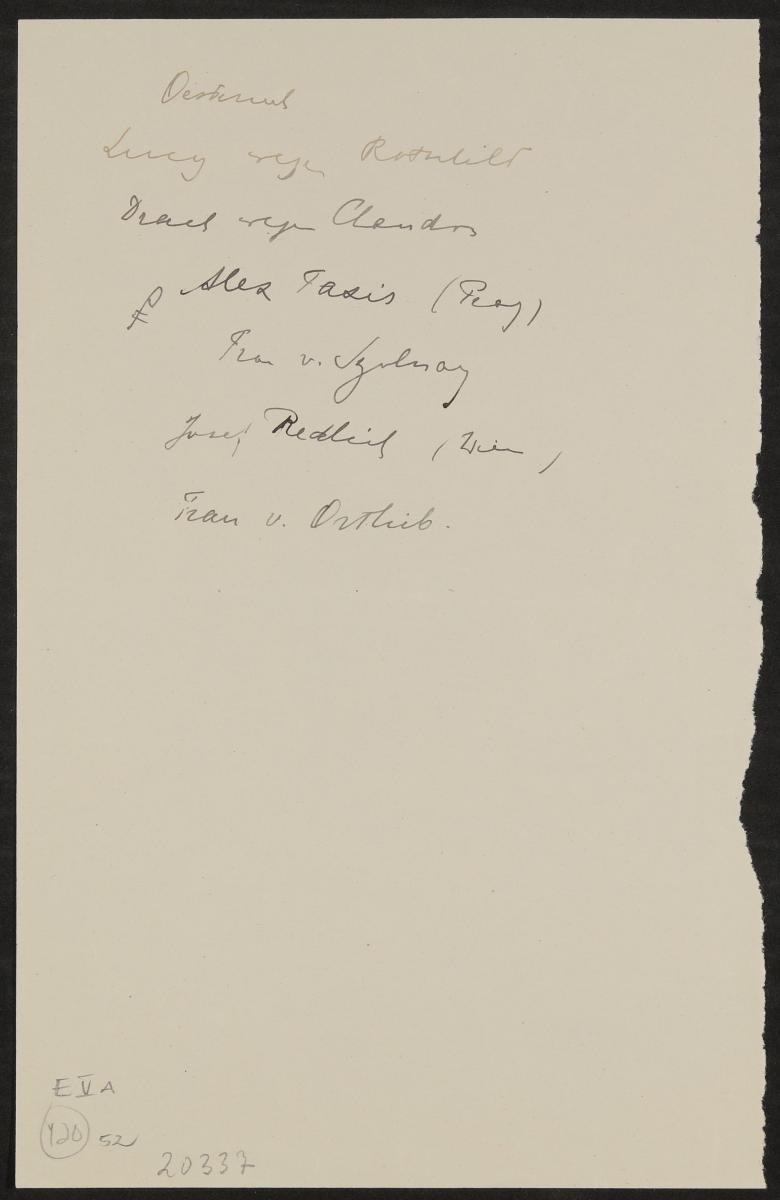 Lucy wegen Rothschild
Drach wegen Chandos
Alex Taxis (Prag)
Frau v. Szolnay
Josef Redlich (Wien)
Frau v. Ortlieb.
E V A
120 52
20337